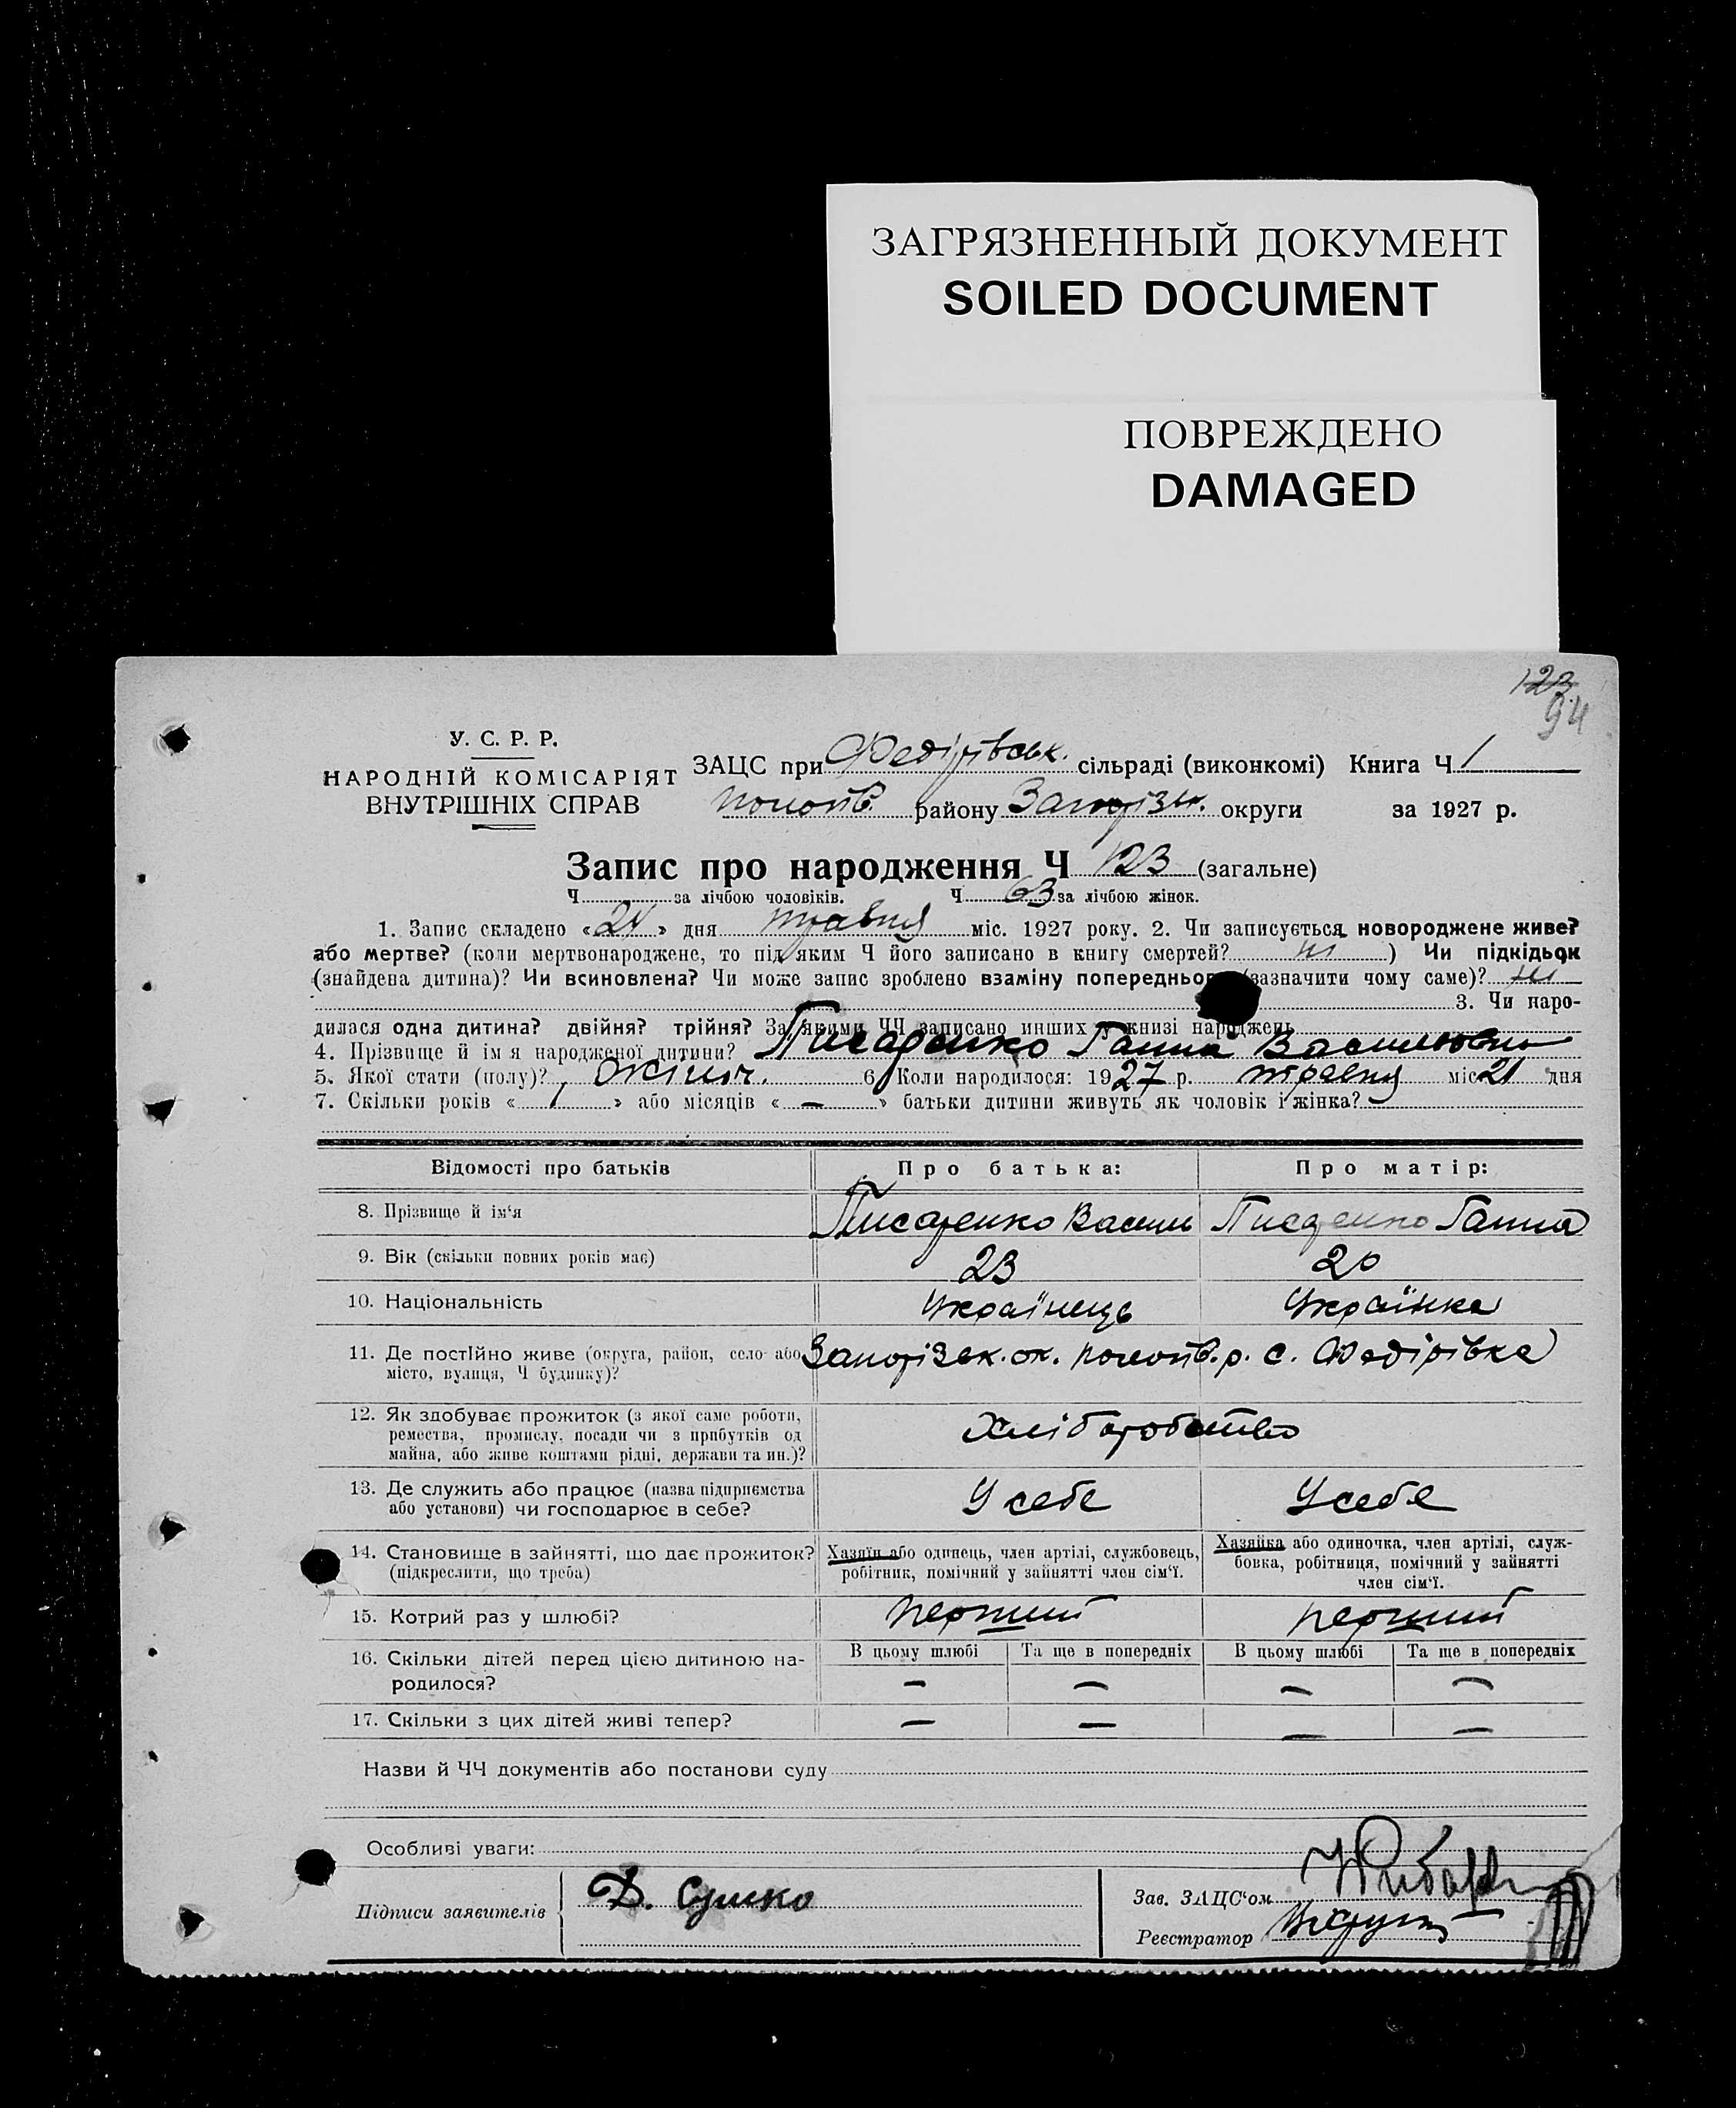 ЗАГРЯЗНЕННЫЙ ДОКУМЕНТ
SOILED DOCUMENT
ПОВРЕЖДЕНО
DAMAGED
123
94
У. С. Р. Р.
НАРОДНІЙ КОМІСАРІЯТ
ВНУТРІШНІХ СПРАВ
ЗАЦС при Федірівськ. сільраді (виконкомі) Книга Ч 1
району Запоріз. округи за 1927 р.
Запис про народження Ч 123 (загальне)
Ч за лічбою чоловіків. Ч 63 за лічбою жінок.
1. Запис складено «24» дня травня міс. 1927 року. 2. Чи записується новороджене живе?
або мертве? (коли мертвонароджене, то під яким Ч його записано в книгу смертей? ні ) Чи підкідьок
(знайдена дитина)? Чи всиновлена? Чи може запис зроблено взаміну попереднього (зазначити чому саме)? ні
3. Чи наро-
дилася одна дитина? двійня? трійня? За якими ЧЧ записано инших у книзі народжень
4. Прізвище й ім я народженої дитини? Писаренко Ганна Василювна
5. Якої стати (полу)? жіноч. 6. Коли народилося: 1927 р. травня міс 21 дня
7. Скільки років « 1 » або місяців « — » батьки дитини живуть як чоловік і жінка?
Відомості про батьків Про батька: Про матір:
8. Прізвище й ім'я Писаренко Васил Писаренко Ганна
9. Вік (скільки повних років має) 23 20
10. Національність Українець Українка
11. Де постійно живе (округа, район, село або Запорізьк. ок. р. с. Федірівка
місто, вулиця, Ч будинку)?
12. Як здобуває прожиток (з якої саме роботи, Хліборобство
ремества, промислу, посади чи з прибутків од
майна, або живе коштами рідні, держави та ин.)?
13. Де служить або працює (назва підприємства У себе У себе
або установи) чи господарює в себе?
14. Становище в зайнятті, що дає прожиток? Хазяїн або одинець, член артілі, службовець, Хазяйка або одиночка, член артілі, служ-
(підкреслити, що треба) робітник, помічний у зайнятті член сім'ї. бовка, робітниця, помічний у зайнятті
член сім'ї.
15. Котрий раз у шлюбі? перший перший
16. Скільки дітей перед цією дитиною на- В цьому шлюбі Та ще в попередніх В цьому шлюбі Та ще в попередніх
родилося? — — — —
17. Скільки з цих дітей живі тепер? — — — —
Назви й ЧЧ документів або постанови суду
Особливі уваги:
Підписи заявителів Д. Сушко
Зав. ЗАЦС'ом
Реєстратор